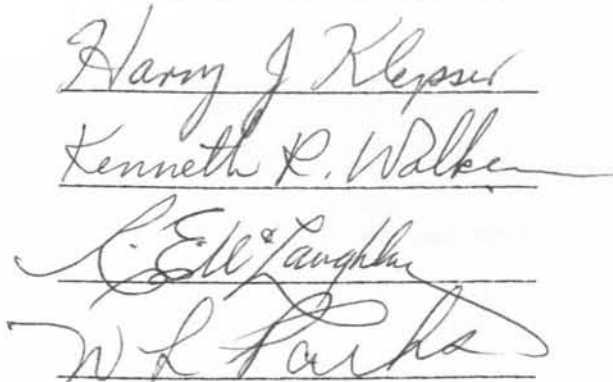 Harry J Klepser
Kenneth R. Walker
R. E. McLaughlin
W L Parks